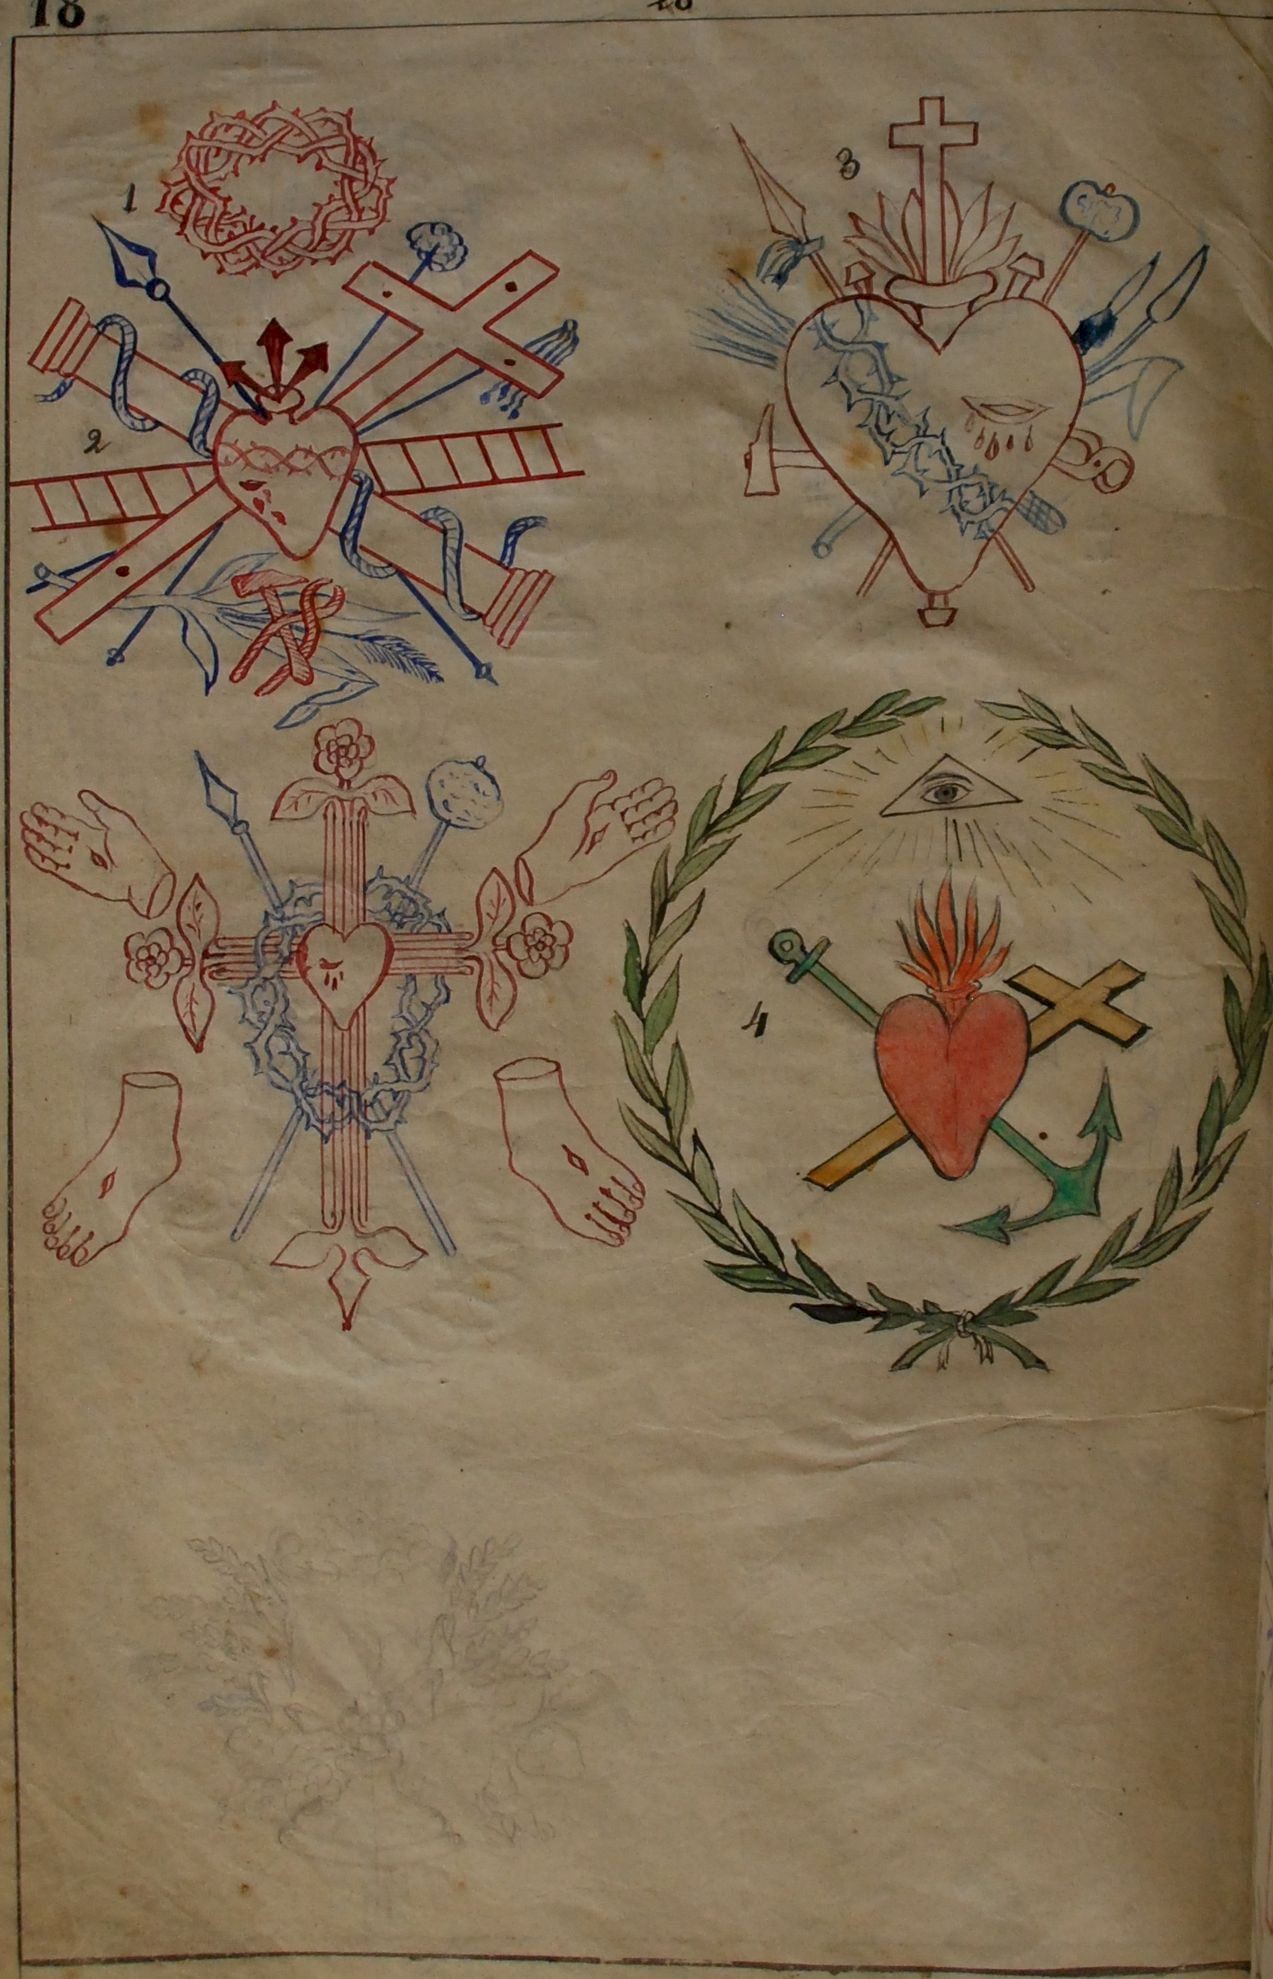 18
18
1
3
2
4